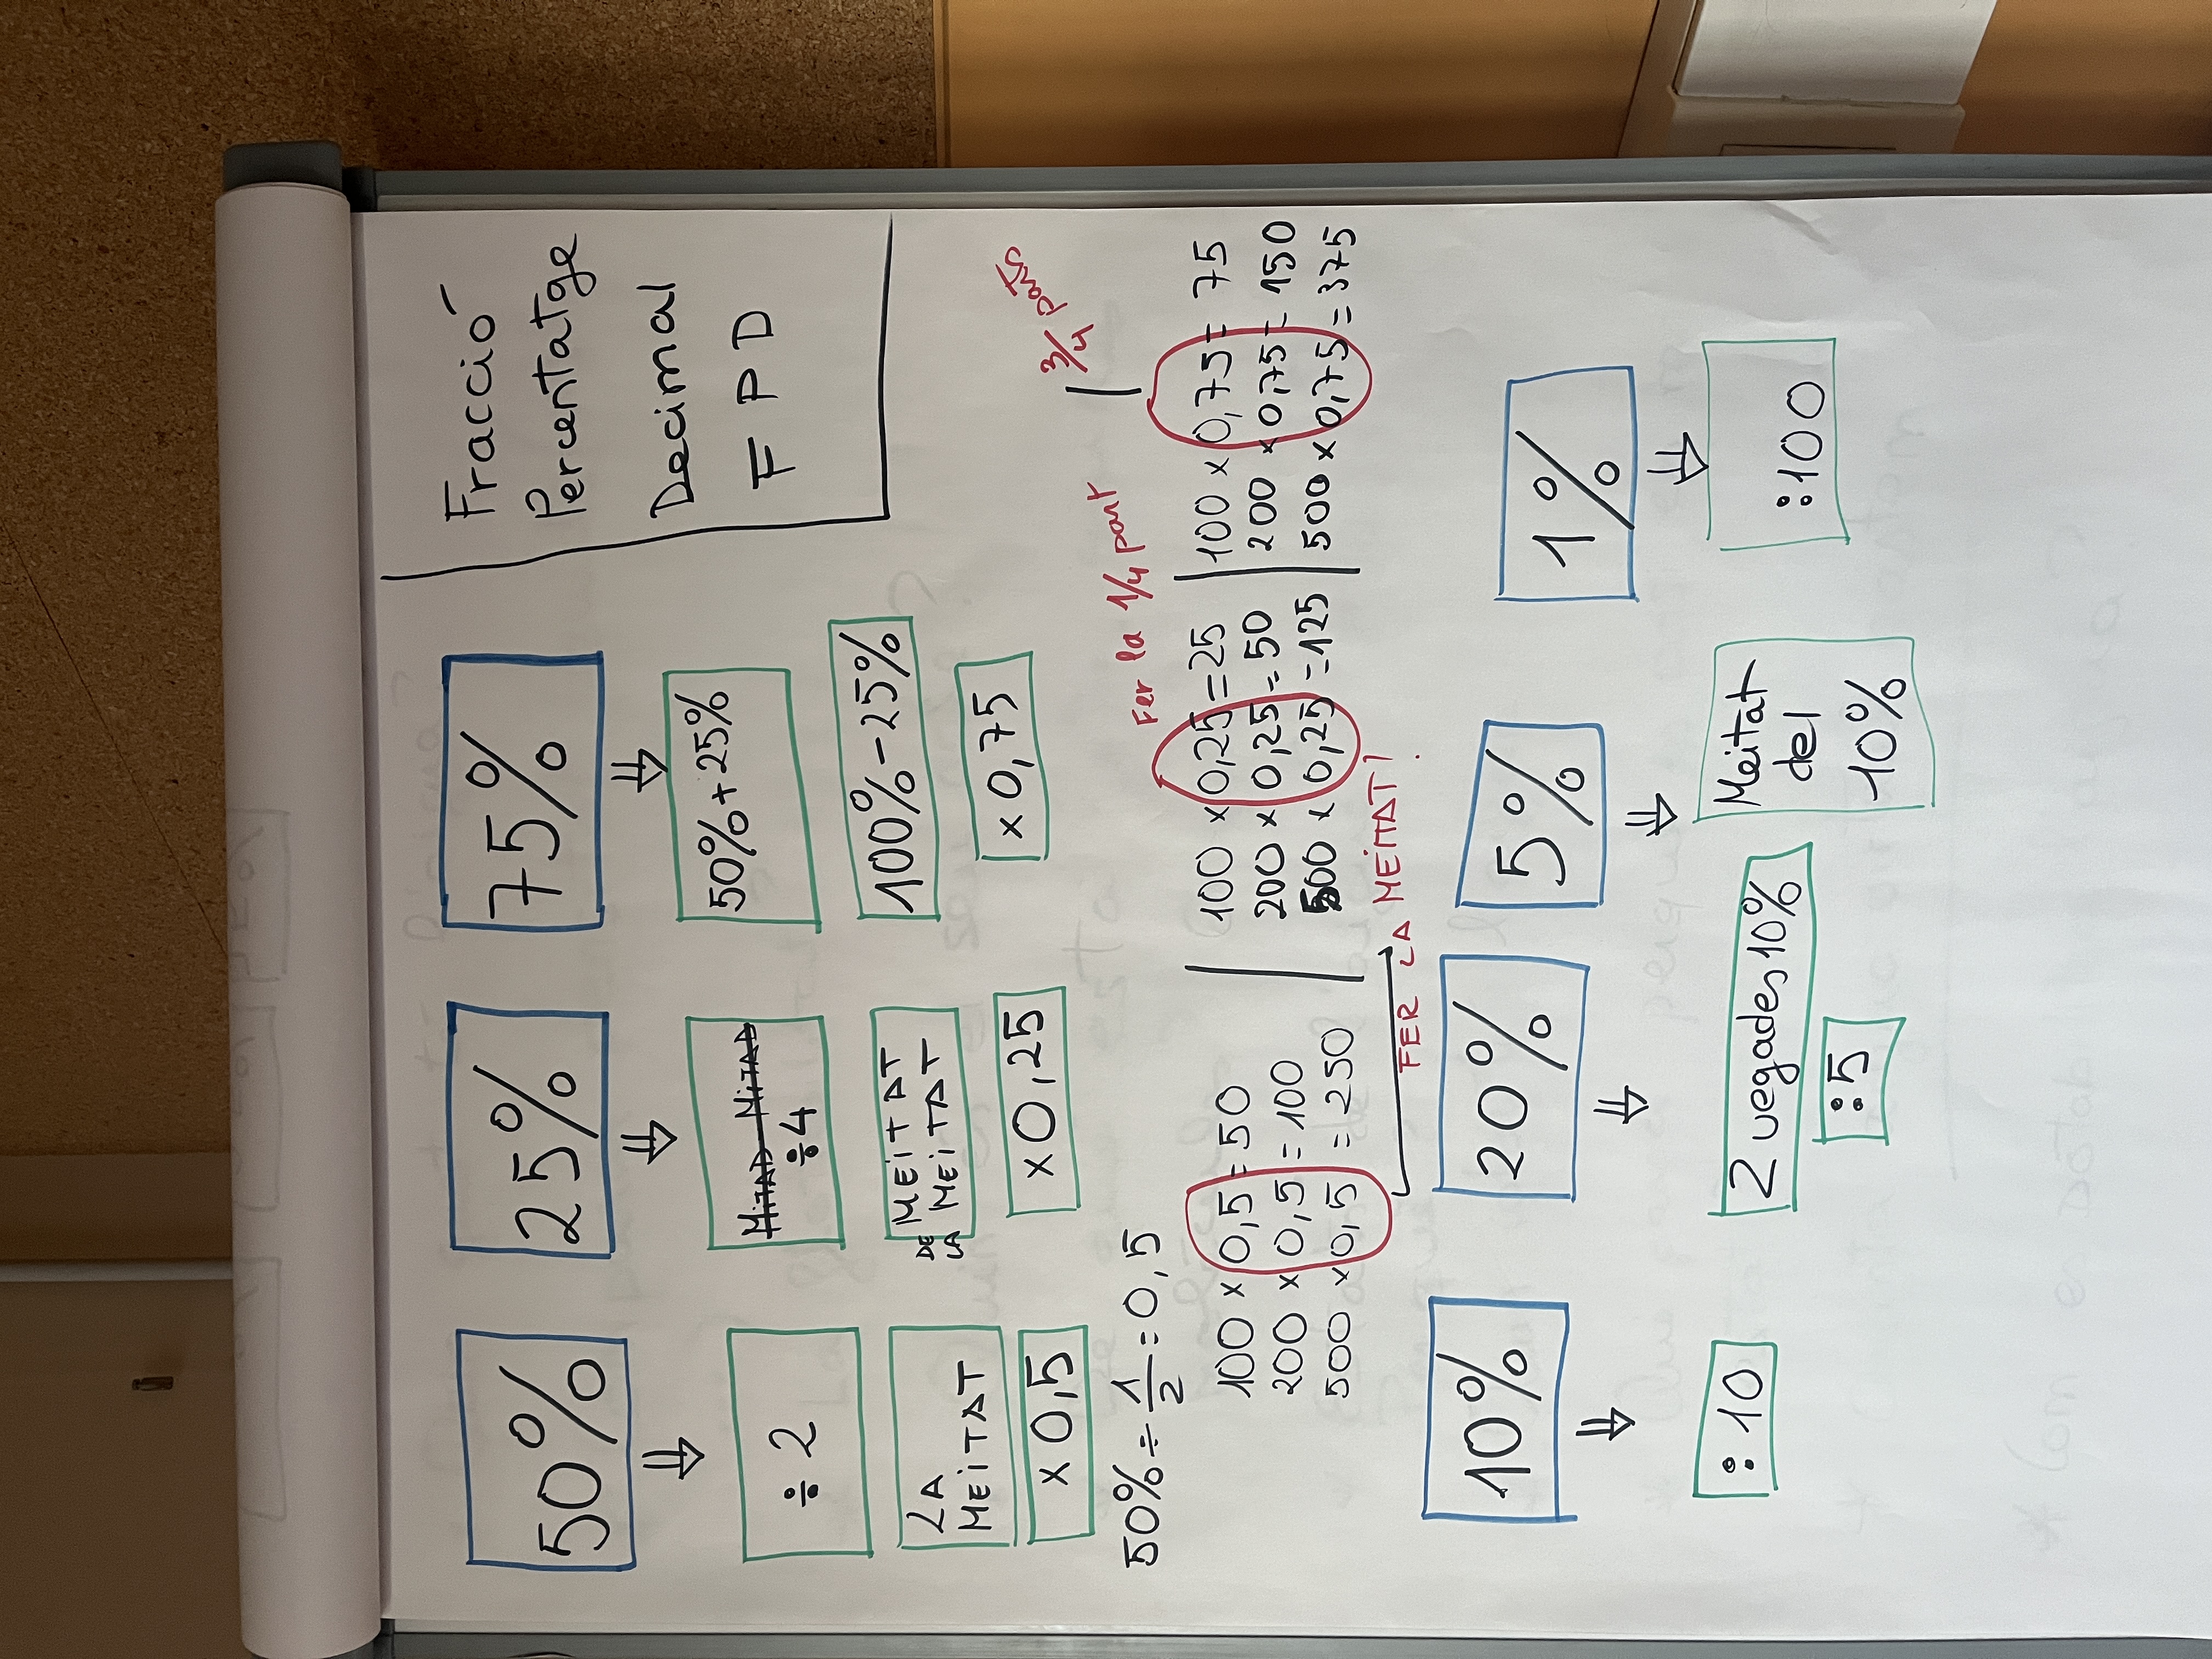 Fracció
Percentatge
Decimal
F P D
50%
⇓
÷ 2
LA
MEITAT
x 0,5
25%
⇓
MITAD MITAD
÷4
MEITAT
DE LA MEITAT
x 0,25
75%
⇓
50% + 25%
100% - 25%
x 0,75
50% ÷ 1/2 = 0,5
100 x 0,5 = 50
200 x 0,5 = 100
500 x 0,5 = 250
FER LA MEITAT!
Fer la 1/4 part
100 x 0,25 = 25
200 x 0,25 = 50
500 x 0,25 = 125
3/4 parts
100 x 0,75 = 75
200 x 0,75 = 150
500 x 0,75 = 375
10%
⇓
: 10
20%
⇓
2 vegades 10%
:5
5%
⇓
Meitat
del
10%
1%
⇓
:100